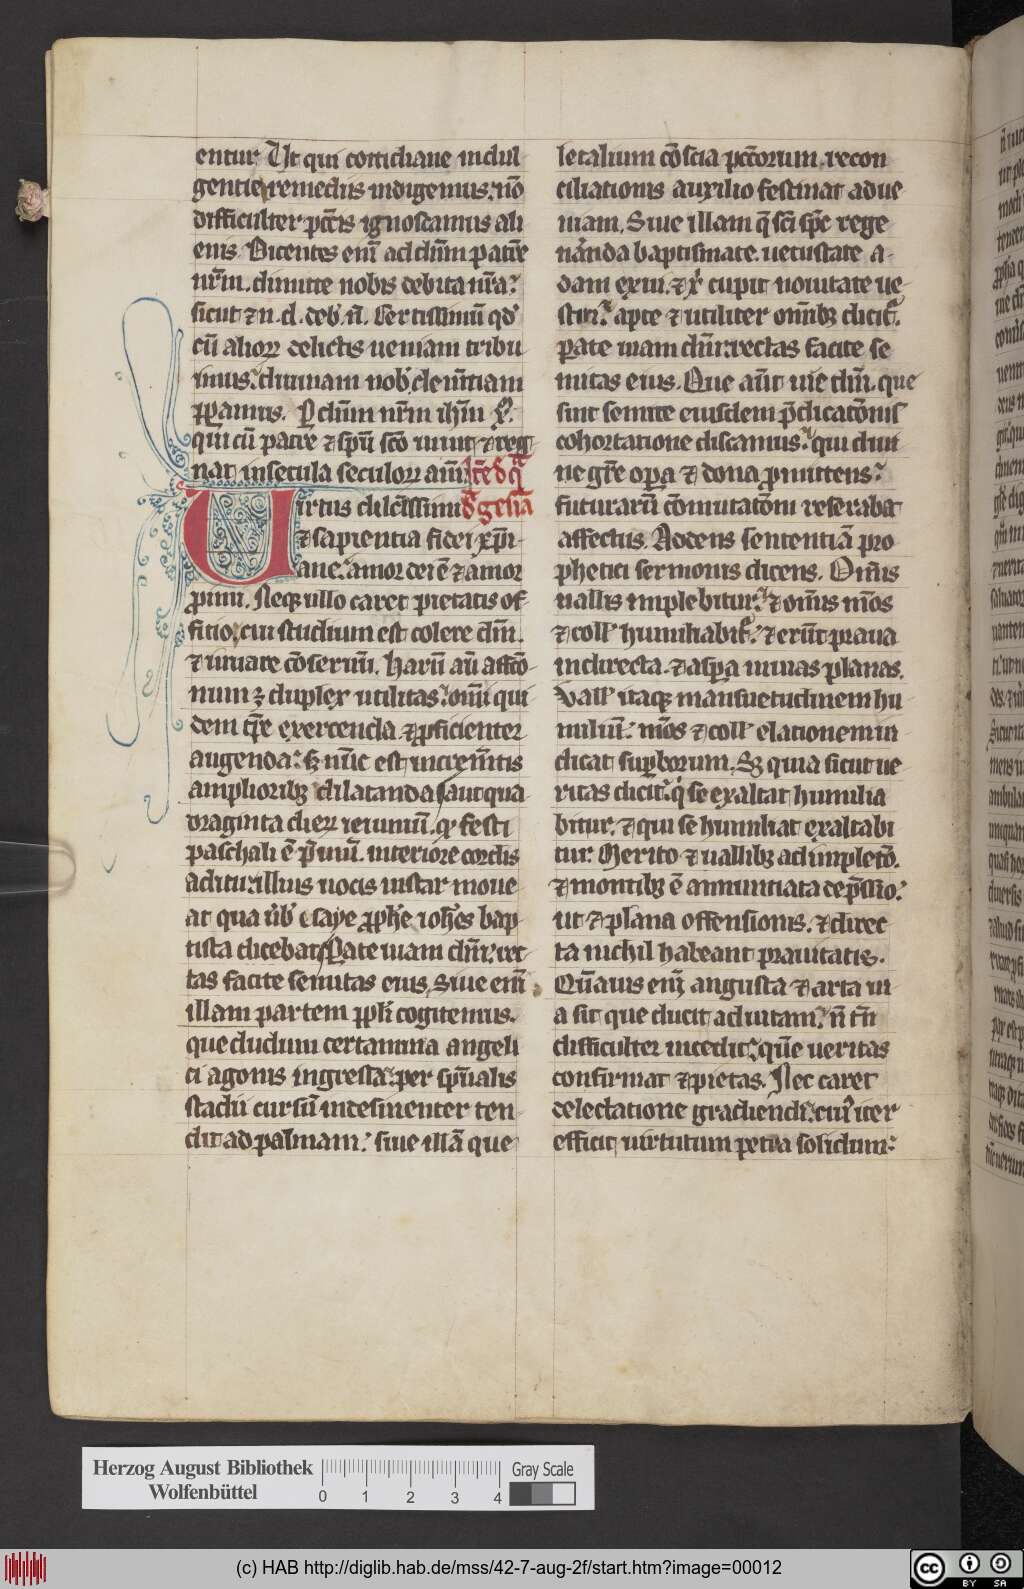 entur. Ut qui cottidiane indul
gentie remediis indigemus: nō
difficulter pcc̄is ignoscamus ali
enis. Dicentes enī ad dn̄m patrē
nr̄m. dimitte nobis debita nr̄a:
sicut ⁊ n. d. deb̾. n̄. Certissimū qd̾
cū alioꝝ delictis ueniam tribu
imus: diuinam nob̾ clem̄tiam
ꝓpamus. P dn̄m nr̄m ihm̄ xp̄.
qui cū patre ⁊ spū scō uiuit ⁊ reg
nat in secula seculoꝝ am̄.
Uirtus dilc̄issimi
⁊ sapientia fidei xp̄i
ane: amor dei ē ⁊ amor
ꝓximi. Neqꝫ ullo caret pietatis of
ficio. cui studium est colere dm̄.
⁊ iuuare cōseruū. Harū aū affcō
num ꝫ duplex utilitas: om̄i qui
dem tp̄re exercenda ⁊ ꝓficienter
augenda: sꝫ nūc est increm̄tis
amplioribꝫ dilatanda. aut qua
draginta dieꝝ ieiuniū. qd̾ festi
paschali ē p̄uiū. interiore cordis
aditu: illius uocis instar moue
at qua ūb̾ esaye ꝓph̄e ioh̄es bap
tista dicebat. Pate uiam dn̄i: rec
tas facite semitas eius. Siue enī
illam partem ppl̄i cogitemus.
que dudum certamina angeli
ci agonis ingressa: per spūalis
stadii cursū indesinenter ten
dit ad palmam: siue illā que
letalium cōscia pcc̄orum. recon
ciliationis auxilio festinat ad ue
niam. Siue illam q̄ sc̄i sp̄c rege
nāda baptismate. uetustate a
dam exui. ⁊ xp̄i cupit nouitate ue
stiri: apte ⁊ utiliter om̄ibꝫ dicit̄.
Parate uiam dn̄i: rectas facite se
mitas eius. Que aūt uie dn̄i. que
sint semite eiusdem p̄dicatōnis
cohortatione discamus: qui diui
ne grē opa ⁊ dona ꝓmittens:
futurarū cōmutatōm reserabat
affectus. Addens sententiā pro
phetici sermonis dicens. Om̄is
uallis implebitur: ⁊ om̄is mōs
⁊ coll̾ humiliabit̄: ⁊ erūt praua
in directa. ⁊ aspa in uias planas.
Vall̾ itaqꝫ mansuetudinem hu
miliū: mōs ⁊ coll̾ elationem in
dicat supborum. Sꝫ quia sicut ue
ritas dicit: qi se exaltat humilia
bitur. ⁊ qui se humiliat exaltabi
tur. Merito ⁊ uallibꝫ adimpletō.
⁊ montibꝫ ē annuntiata dep̄ssio:
ut ⁊ plana offensionis. ⁊ direc
ta nichil habeant prauitatis.
Qūauis enī angusta ⁊ arta ui
a sit que ducit ad uitam: n̄ tn̄
difficulter incedit: quē ueritas
confirmat ⁊ pietas. Nec caret
delectatione gradiendi: cui iter
efficit uirtutum petra solidum:
Herzog August Bibliothek
Wolfenbüttel
0 1 2 3 4
Gray Scale
(c) HAB http://diglib.hab.de/mss/42-7-aug-2f/start.htm?image=00012
cc BY SA